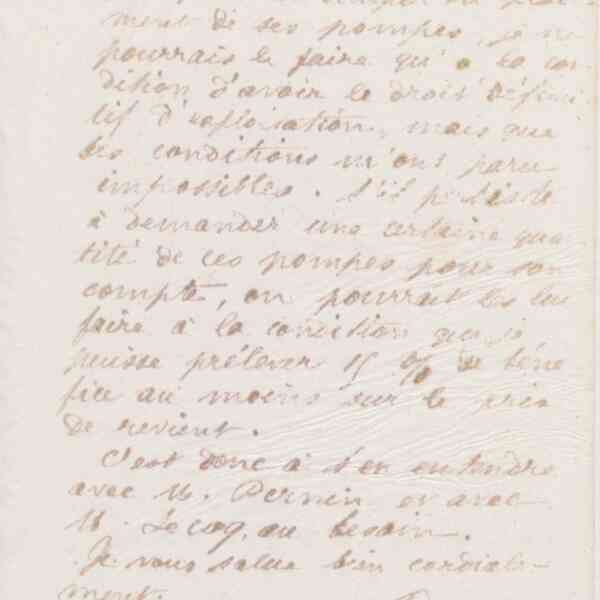 ment de ses pompes, je ne
pourrais le faire qu'à la con
dition d'avoir le droit défini
tif d'exploitation, mais que
les conditions m'ont paru
impossibles. S'il persiste
à demander une certaine quan
tité de ces pompes pour son
compte, on pourrait les lui
faire à la condition que je
puisse prélever 15 % de béné
fice au moins sur le prix
de revient.
C'est donc à s'en entendre
avec M. Pernin et avec
M. Lecoq, au besoin.
Je vous salue bien cordiale-
ment.